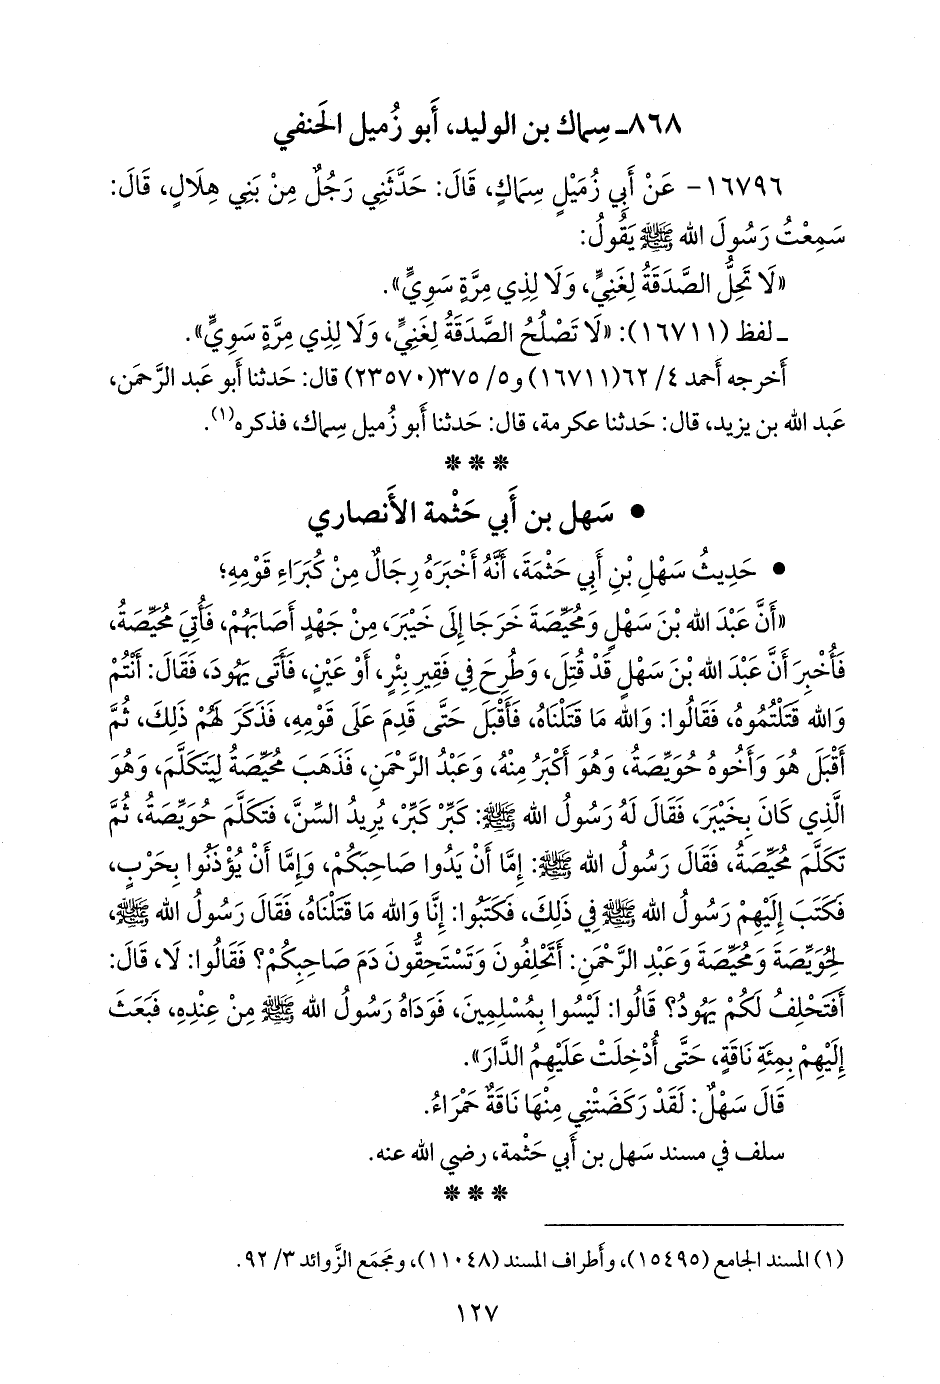 ٨٦٨ـ سِماك بن الوليد، أَبو زُميل الحَنفي
١٦٧٩٦- عَنْ أَبِي زُمَيْلٍ سِمَاكٍ، قَالَ: حَدَّثَنِي رَجُلٌ مِنْ بَنِي هِلَالٍ، قَالَ:
سَمِعْتُ رَسُولَ الله ﷺ يَقُولُ:
«لَا تَحِلُّ الصَّدَقَةُ لِغَنِيٍّ، وَلَا لِذِي مِرَّةٍ سَوِيٍّ».
ـ لفظ (١٦٧١١): «لَا تَصْلُحُ الصَّدَقَةُ لِغَنِيٍّ، وَلَا لِذِي مِرَّةٍ سَوِيٍّ».
أَخرجه أَحمد ٤/ ٦٢(١٦٧١١) و٥/ ٣٧٥(٢٣٥٧٠) قال: حَدثنا أَبو عَبد الرَّحمَن،
عَبد الله بن يزيد، قال: حَدثنا عكرمة، قال: حَدثنا أَبو زُميل سِماك، فذكره(١).
* * *
• سَهل بن أَبي حَثْمة الأَنصاري
• حَدِيثُ سَهْلِ بْنِ أَبِي حَثْمَةَ، أَنَّهُ أَخْبَرَهُ رِجَالٌ مِنْ كُبَرَاءِ قَوْمِهِ؛
«أَنَّ عَبْدَ الله بْنَ سَهْلٍ وَمُحَيِّصَةَ خَرَجَا إِلَى خَيْبَرَ، مِنْ جَهْدٍ أَصَابَهُمْ، فَأُتِيَ مُحَيِّصَةُ،
فَأُخْبِرَ أَنَّ عَبْدَ الله بْنَ سَهْلٍ قَدْ قُتِلَ، وَطُرِحَ فِي فَقِيرِ بِئْرٍ، أَوْ عَيْنٍ، فَأَتَى يَهُودَ، فَقَالَ: أَنْتُمْ
وَالله قَتَلْتُمُوهُ، فَقَالُوا: وَالله مَا قَتَلْنَاهُ، فَأَقْبَلَ حَتَّى قَدِمَ عَلَى قَوْمِهِ، فَذَكَرَ لَهُمْ ذَلِكَ، ثُمَّ
أَقْبَلَ هُوَ وَأَخُوهُ حُوَيِّصَةُ، وَهُوَ أَكْبَرُ مِنْهُ، وَعَبْدُ الرَّحْمَنِ، فَذَهَبَ مُحَيِّصَةُ لِيَتَكَلَّمَ، وَهُوَ
الَّذِي كَانَ بِخَيْبَرَ، فَقَالَ لَهُ رَسُولُ الله ﷺ: كَبِّرْ كَبِّرْ، يُرِيدُ السِّنَّ، فَتَكَلَّمَ حُوَيِّصَةُ، ثُمَّ
تَكَلَّمَ مُحَيِّصَةُ، فَقَالَ رَسُولُ الله ﷺ: إِمَّا أَنْ يَدُوا صَاحِبَكُمْ، وَإِمَّا أَنْ يُؤْذَنُوا بِحَرْبٍ،
فَكَتَبَ إِلَيْهِمْ رَسُولُ الله ﷺ فِي ذَلِكَ، فَكَتَبُوا: إِنَّا وَالله مَا قَتَلْنَاهُ، فَقَالَ رَسُولُ الله ﷺ،
لِحُوَيِّصَةَ وَمُحَيِّصَةَ وَعَبْدِ الرَّحْمَنِ: أَتَحْلِفُونَ وَتَسْتَحِقُّونَ دَمَ صَاحِبِكُمْ؟ فَقَالُوا: لَا، قَالَ:
أَفَتَحْلِفُ لَكُمْ يَهُودُ؟ قَالُوا: لَيْسُوا بِمُسْلِمِينَ، فَوَدَاهُ رَسُولُ الله ﷺ مِنْ عِنْدِهِ، فَبَعَثَ
إِلَيْهِمْ بِمِئَةِ نَاقَةٍ، حَتَّى أُدْخِلَتْ عَلَيْهِمُ الدَّارَ».
قَالَ سَهْلٌ: لَقَدْ رَكَضَتْنِي مِنْهَا نَاقَةٌ حَمْرَاءُ.
سلف في مسند سَهل بن أَبي حَثْمة، رضي الله عنه.
* * *
(١) المسند الجامع (١٥٤٩٥)، وأَطراف المسند (١١٠٤٨)، ومَجمَع الزَّوائد ٣/ ٩٢.
١٢٧